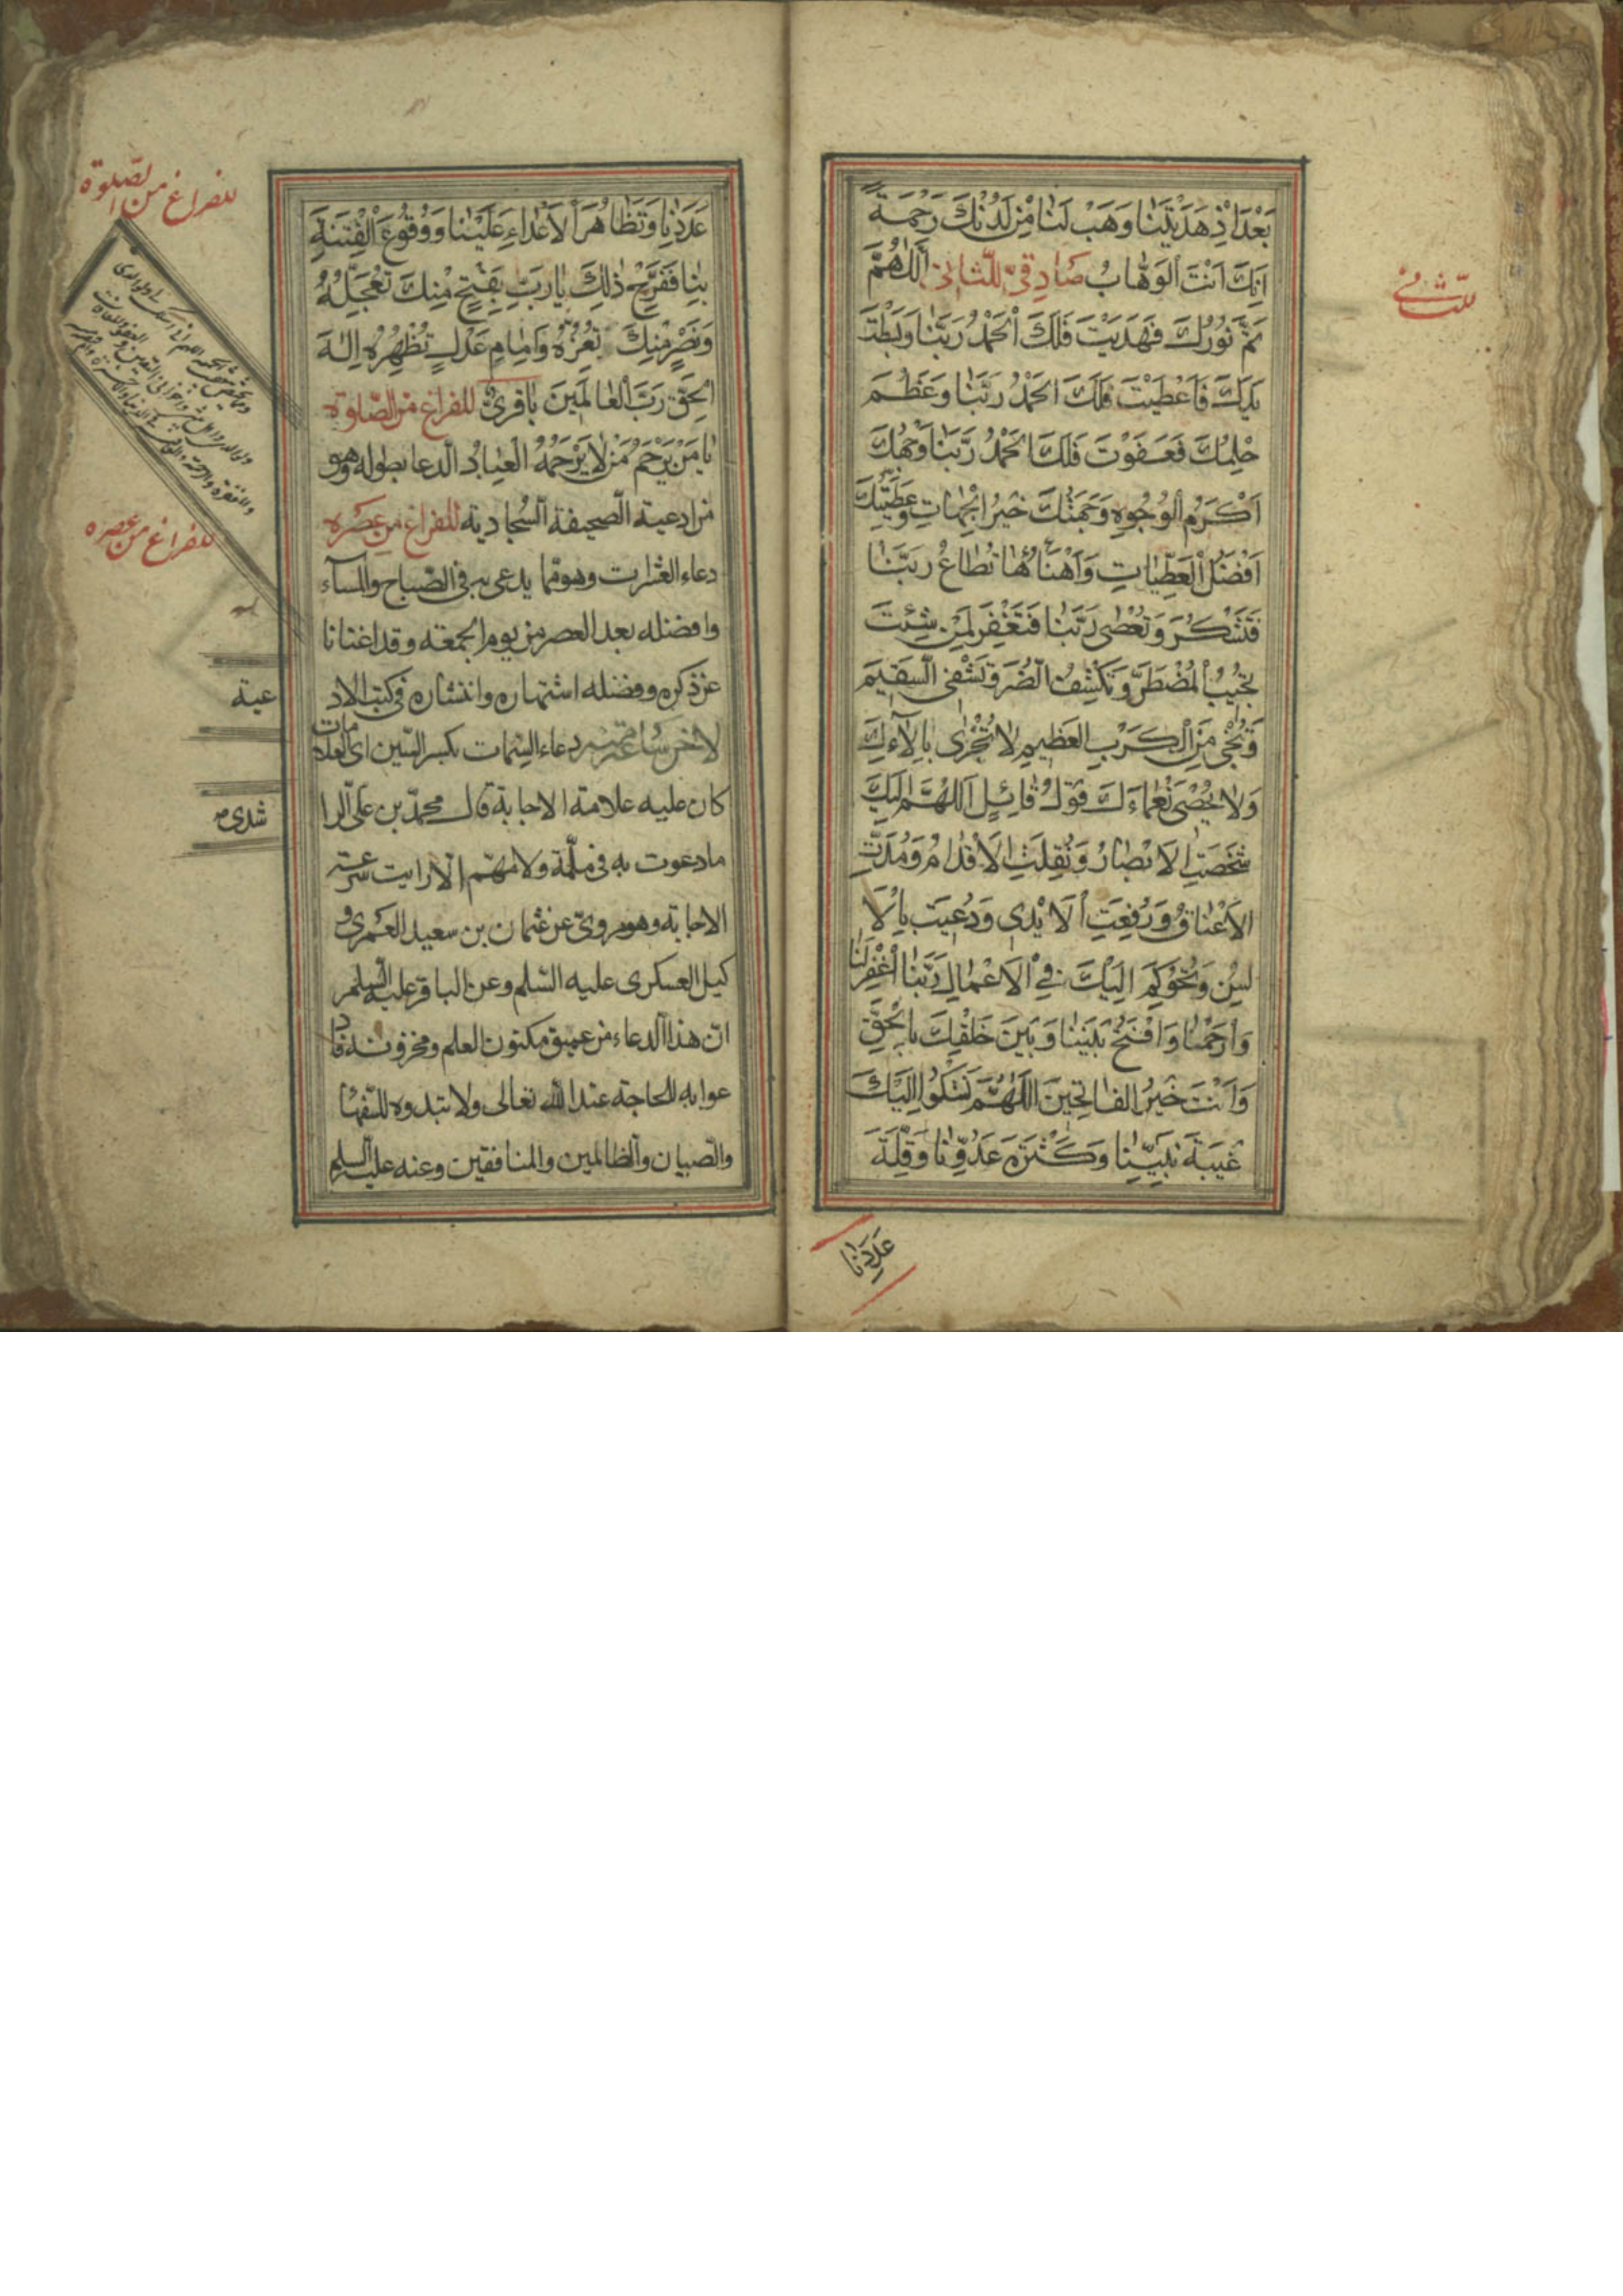 بَعْدَ اِذْ هَدَيْتَنٰا وَهَبْ لَنٰا مِنْ لَدُنْكَ رَحْمَةً
اِنَّكَ اَنْتَ الْوَهّٰابُ صٰادِقىّ للثّانى اَللّٰهُمَّ
تَمَّ نُورُكَ فَهَدَيْتَ فَلَكَ الْحَمْدُ رَبَّنٰا وَبَسَطْتَ
يَدَكَ فَاَعْطَيْتَ فَلَكَ الْحَمْدُ رَبَّنٰا وَعَظُمَ
حِلْمُكَ فَعَفَوْتَ فَلَكَ الْحَمْدُ رَبَّنٰا وَجْهُكَ
اَكْرَمُ الْوُجُوهِ وَجِهَتُكَ خَيْرُ الْجِهٰاتِ وَعَطِيَّتُكَ
اَفْضَلُ الْعَطِيّٰاتِ وَاَهْنَاُهٰا تُطٰاعُ رَبَّنٰا
فَتَشْكُرُ وَتُعْصٰى رَبَّنٰا فَتَغْفِرُ لِمَنْ شِئْتَ
تُجِيبُ الْمُضْطَرَّ وَتَكْشِفُ الضُّرَّ وَتَشْفِى السَّقِيمَ
وَتُنْجِى مِنَ الْكَرْبِ الْعَظِيمِ لاٰ تُجْزٰى بِاٰلاٰءِكَ
وَلاٰ يُحْصٰى نَعْمٰاءَكَ قَوْلُ قٰائِلٍ اَللّٰهُمَّ اِلَيْكَ
شَخَصَتِ الْاَبْصٰارُ وَنُقِلَتِ الْاَقْدٰامُ وَمُدَّتِ
الْاَعْنٰاقُ وَرُفِعَتِ الْاَيْدِى وَدُعِيَتْ بِالْاَ
لْسُنِ وَتُحُوكِمَ اِلَيْكَ فِى الْاَعْمٰالِ رَبَّنَا اغْفِرْ لَنٰا
وَارْحَمْنٰا وَافْتَحْ بَيْنَنٰا وَبَيْنَ خَلْقِكَ بِالْحَقِّ
وَاَنْتَ خَيْرُ الْفٰاتِحِينَ اَللّٰهُمَّ نَشْكُوا اِلَيْكَ
غَيْبَةَ نَبِيِّنٰا وَكَثْرَةَ عَدُوِّنٰا وَقِلَّةَ
عَدَدِنٰا
للثّانى
عَدَدِنٰا وَتَظٰاهُرَ الْاَعْدٰاءِ عَلَيْنٰا وَوُقُوعَ الْفِتْنَةِ
بِنٰا فَفَرِّجْ ذٰلِكَ يٰا رَبِّ بِفَتْحٍ مِنْكَ تُعَجِّلُهُ
وَنَصْرٍ مِنْكَ تُعِزُّهُ وَاِمٰامِ عَدْلٍ تُظْهِرُهُ اِلٰهَ
الْحَقِّ رَبَّ الْعٰالَمِينَ باقرىّ للفراغ من الصّلوة
يٰا مَنْ يَرْحَمُ مَنْ لاٰ يَرْحَمُهُ الْعِبٰادُ الدّعا بطوله وهو
من ادعية الصّحيفة السّجادية للفراغ من عصره
دعاء العشرات وهو ممّا يدعى به فى الصّباح والمسآء
وافضله بعد العصر من يوم الجمعة وقد اغنانا
عن ذكره وفضله اشتهاره وانتشاره فى كتب الاد
لاخر دعاء السّمات بكسر السّين اى العلامات
كان عليه علامة الاجابة قال محمّد بن علىّ الرا
ما دعوت به فى ملمّة ولا مهمّ الّا رايت سرعة
الاجابة وهو مروىّ عن عثمان بن سعيد العمرى و
كيل العسكرى عليه السّلم وعن الباقر عليه السّلم
انّ هذا الدعاء من عميق مكنون العلم ومخزونه فاد
عوا به للحاجة عند الله تعالى ولا تبدوه للسّفهاء
والصّبيان والظالمين والمنافقين وعنه عليه السلم
للفراغ من الصّلوة
للفراغ من عصره
عية
شدى